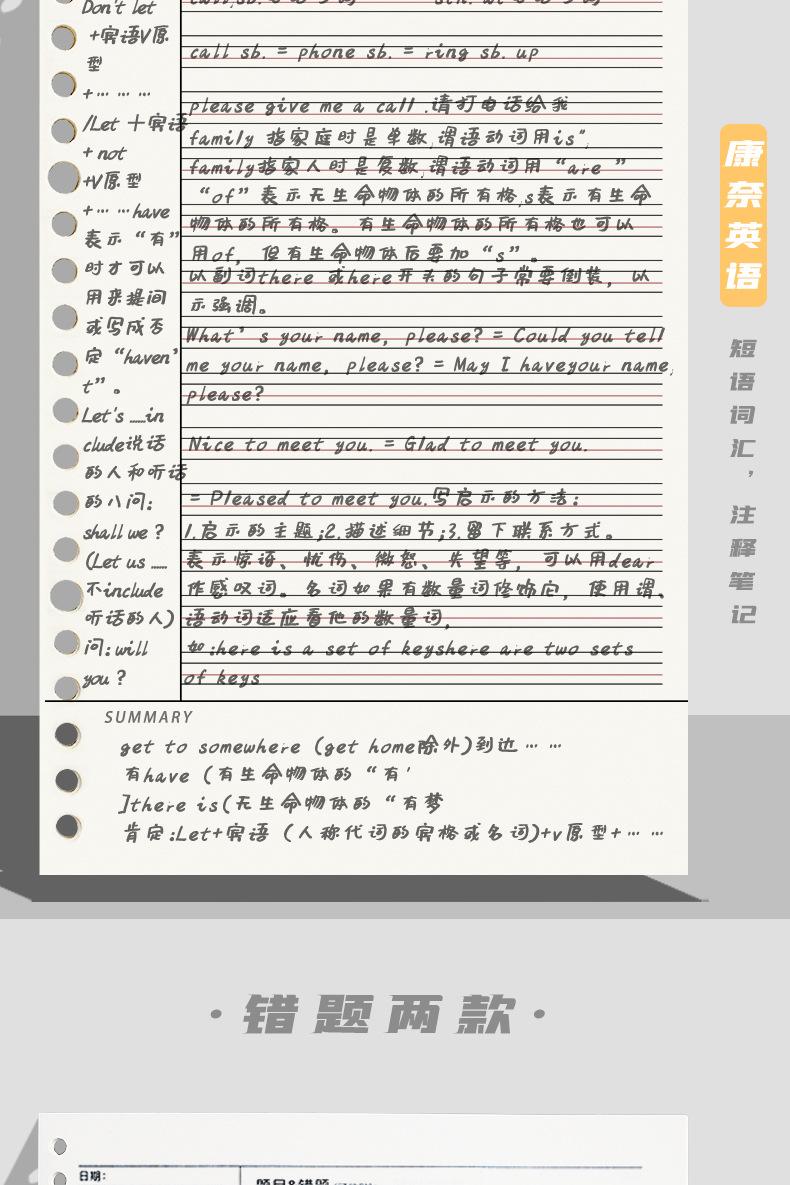 Don't let
+宾语V原
型
+… … …
/Let 十宾语
+ not
+V原型
+… …have
表示“有”
时才可以
用来提问
或写成否
定“haven'
t”。
Let's ……in
clude说话
的人和听话
的八问:
shall we ?
(Let us ……
不include
听话的人)
问: will
you ?
call sb. = phone sb. = ring sb. up
please give me a call .请打电话给我
family 指家庭时是单数,谓语动词用is",
family指家人时是复数,谓语动词用“are ”
“of”表示无生命物体的所有格,s表示有生命
物体的所有格。有生命物体的所有格也可以
用of, 但有生命物体后要加“s”。
以副词there 或here开头的句子常要倒装, 以
示强调。
What’s your name, please? = Could you tell
me your name, please? = May I haveyour name,
please?
Nice to meet you. = Glad to meet you.
= Pleased to meet you.写启示的方法:
1.启示的主题;2.描述细节;3.留下联系方式。
表示惊讶、忧伤、微怒、失望等, 可以用dear
作感叹词。名词如果有数量词修饰它, 使用谓、
语动词适应看他的数量词,
如:here is a set of keyshere are two sets
of keys
SUMMARY
get to somewhere (get home除外)到达 … …
有have (有生命物体的“有'
]there is(无生命物体的“有梦
肯定:Let+宾语 (人称代词的宾格或名词)+v原型+… …
康奈英语
短语词汇，注释笔记
·错题两款·
日期: